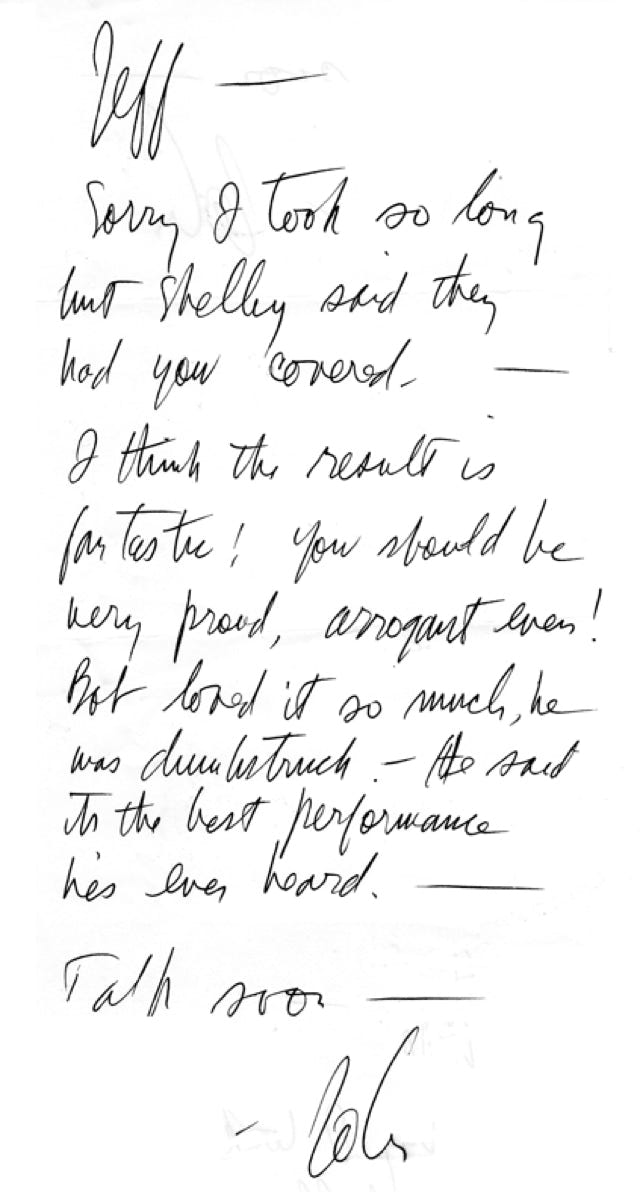 Jeff —
Sorry I took so long
but Shelley said they
had you covered. —
I think the result is
fantastic! You should be
very proud, arrogant even!
Bob loved it so much, he
was dumbstruck. — He said
it's the best performance
he's ever heard. —
Talk soon —
- John